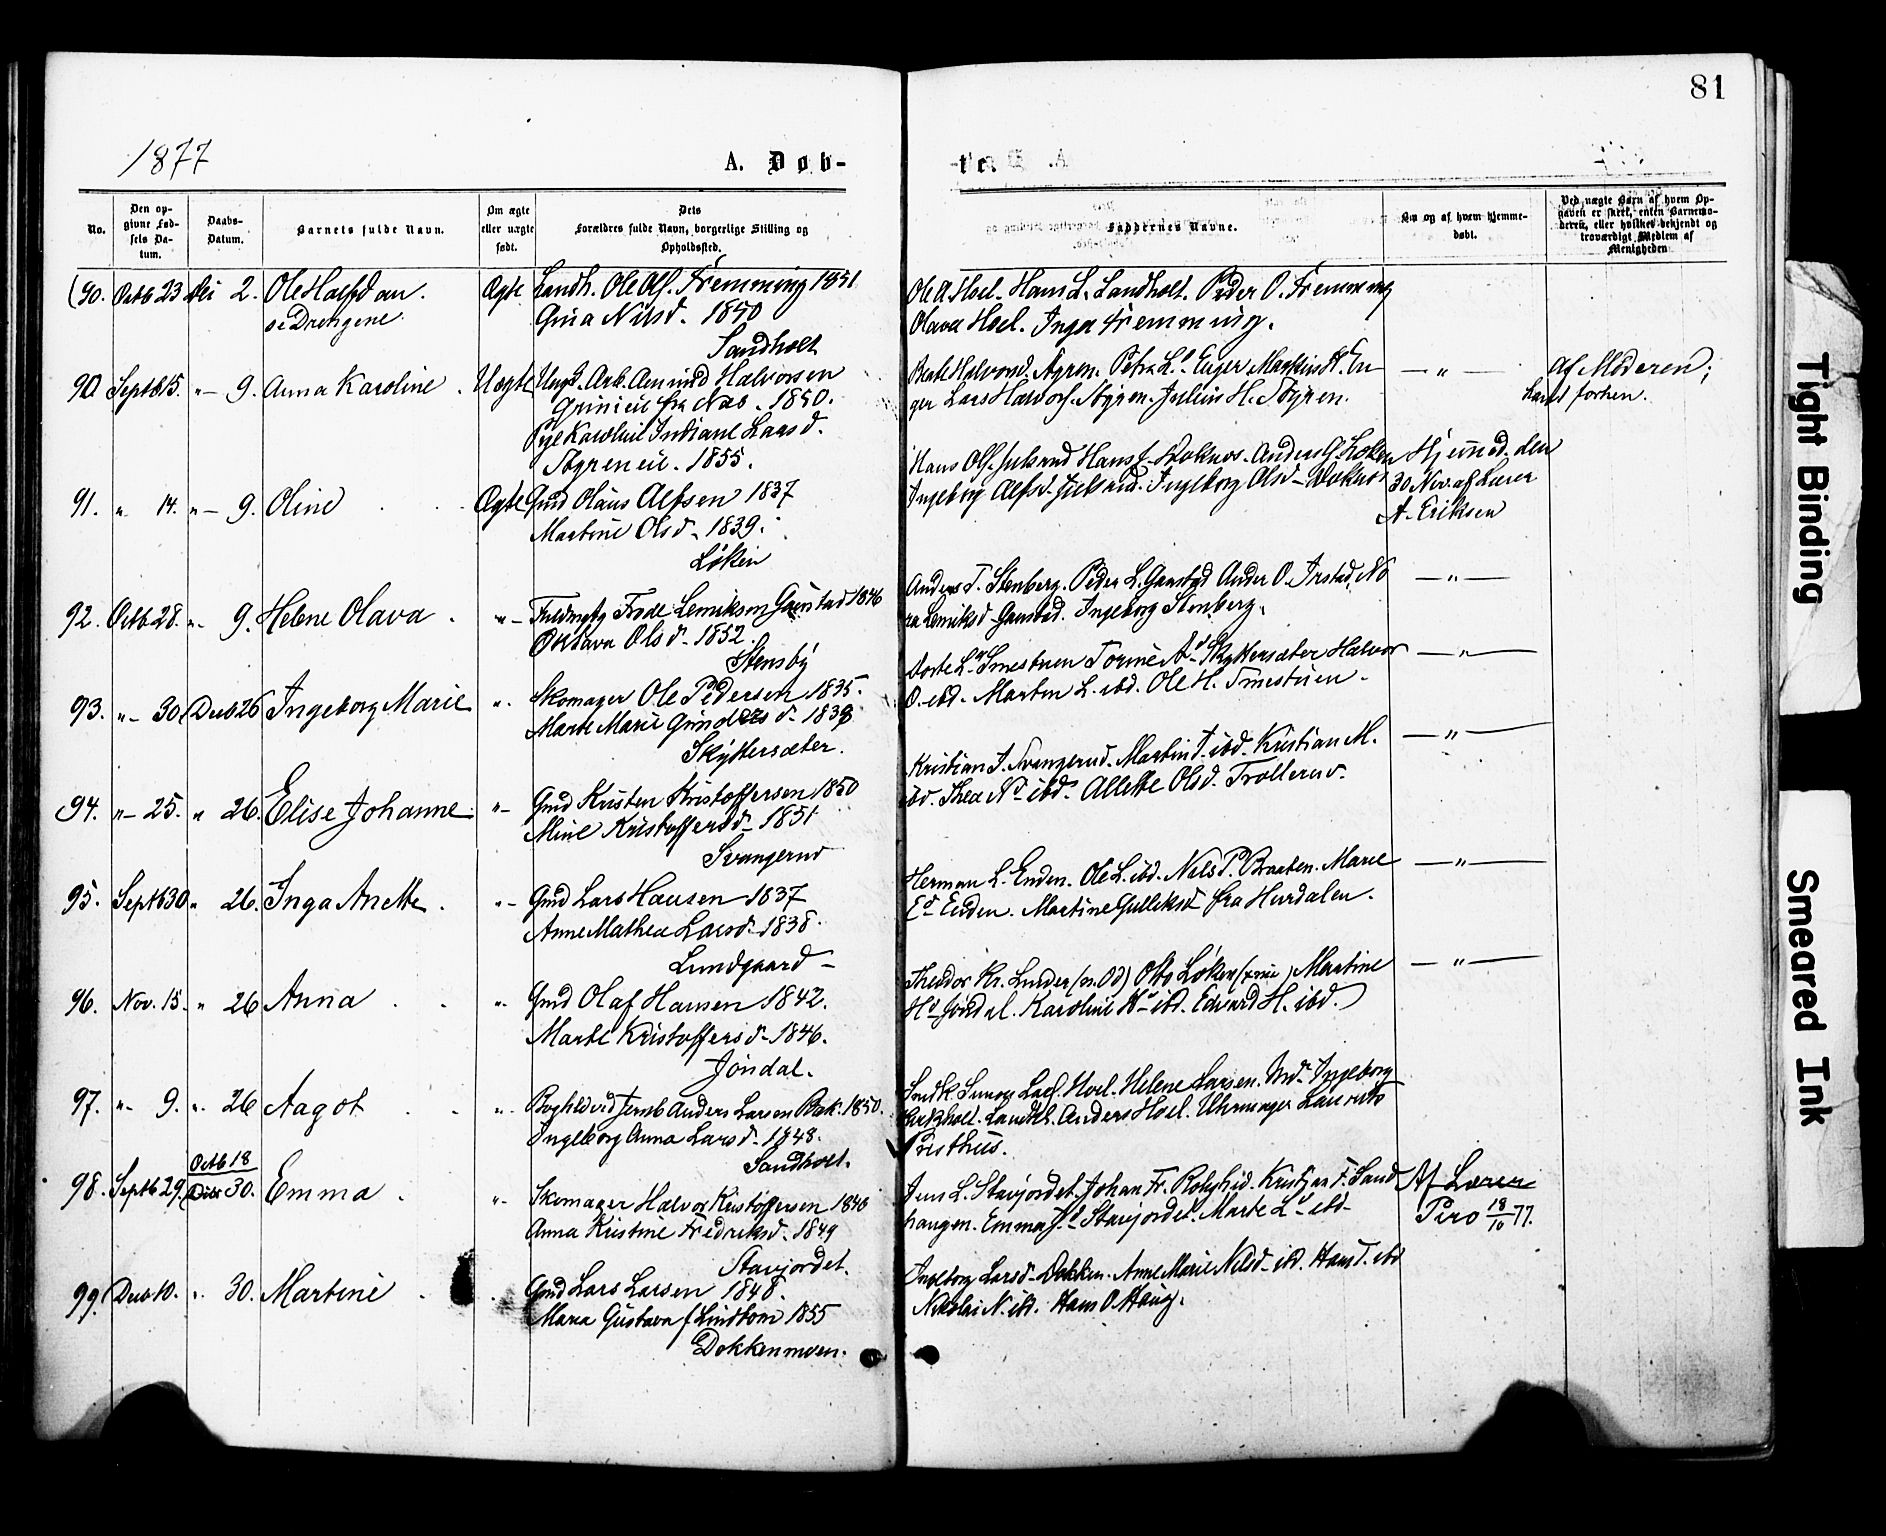 81
1877
A. Døb-
te.
No.
Den op-
givne Fød-
sels Da-
tum.
Daabs-
Datum.
Barnets fulde Navn.
Om ægte
eller uægte
født.
Dets
Forældres fulde Navn, borgerlige Stilling og
Opholdssted.
Faddernes Navne.
Om og af hvem hjemme-
døbt.
Ved uægte Barn af hvem Op-
gaven er skeet, enten Barnemo-
deren, eller hvilket bekjendt og
troværdigt Medlem af
Menigheden.
(90. Octb 23 2. Ole Halfdan. Ægte Landh. Ole Ols. Fremming 1851
se Drengene. Gina Nilsd. 1850
Sandholt
Ole A. Hoel. Hans L. Landholt. Peder O. Fremming
Olava Hoel. Inga Fremming.
90 Septb 15. "- 9. Anna Karoline . Uægte Ungk. Arb. Amund Halvorsen
fra Næs. 1850.
Pige Karoline Indiane Larsd.
Styreneie. 1855.
Beate Halvorsd. Styren. Petra L.d Enger H. En-
ger Lars Halvors. Styren. Julius H. Styren.
— " —
Af Moderen;
forhen.
91. " 14. "- 9. Oline Ægte Gmd Olaus Alfsen 1837
Martine Olsd. 1839.
Løken
Hans Ols. Julsrud Hans Doknos. Anders G. Løken
Ingeborg Alfsd. Julsrud. Ingeborg Olsd. Doknos
Hjemmed. den
30 Nov. af Lærer
A. Eriksen
92. Octb 28. "- 9. Helene Olava . "- Frode Lemiksen Gaustad 1846
Oktava Olsd. 1852.
Stensby
Anders T. Stenberg. Peder L. Gaustad Anders O. No-
ra Lemiksd Gaustad. Ingeborg Stenberg.
— " —
93. "- 30. Decb 26 Ingeborg Marie ". Skomager Ole Pedersen 1835.
Marte Marie Gundersd. 1839
Skyttersæter.
Dorte L.d Smestuen Torine A.d Skyttersæter Halvor
O. ibd. Morten L. ibd. Ole H. Smestuen.
— " —
94. "- 25. " 26. Elise Johanne. "- Gmd Kristen Kristoffersen 1850
Mine Kristoffersd. 1851
Svangerud
Kristian J. Svangerud. Martin T. ibd. Kristian M.
ibd. Thea N.d ibd. Allette Olsd. Trollerud.
— " —
95. Septb 30 " 26. Inga Anette . "- Gmd Lars Hansen 1837
Anne Mathea Larsd. 1838.
Lundgaard —
Herman L. Enden. Ole L. ibd. Nils P. Braaten. Marie
E.d Enden. Martine Gulliksd fra Hurdalen.
— " —
96. Nov. 15. " 26 Anna . . "- Gmd Olaf Hansen 1842.
Marte Kristoffersd. 1846.
Jøndal.
Theodor Kr. Lunder Otto Løken Martine
H.d Jøndal. Karoline H.d ibd. Edvard H. ibd.
— " —
97. "- 9. ". 26 Aagot . . "- Anders Larsen Bak. 1850.
Ingeborg Anna Larsd. 1848.
Sandholt.
Hoel. Helene Larsen. Ingeborg
Anders Hoel. Uhrmager Laurits
Presthus.
98. Septb 29. Octb 18
30. Emma . "- Skomager Halvor Kristoffersen 1846
Anna Kristine Fredriksd. 1849
Stavjordet.
Jens L. Stavjordet. Johan Fr. Kristjan F. Sand-
haugen. Emma J.d Stavjordet. Marte L.d ibd.
Af Lærer
Piro 18/10 77.
99. Decb 10. ". 30. Martine . Gmd Lars Larsen 1848.
Maria Gustava f. Lindbom 1855
Dokkenmoen.
Ingeborg Larsd. Dokken. Anne Marie Nilsd. ibd. Hans T. ibd
Nikolai N. ibd. Hans O. Haug.
Tight Binding
Smeared Ink